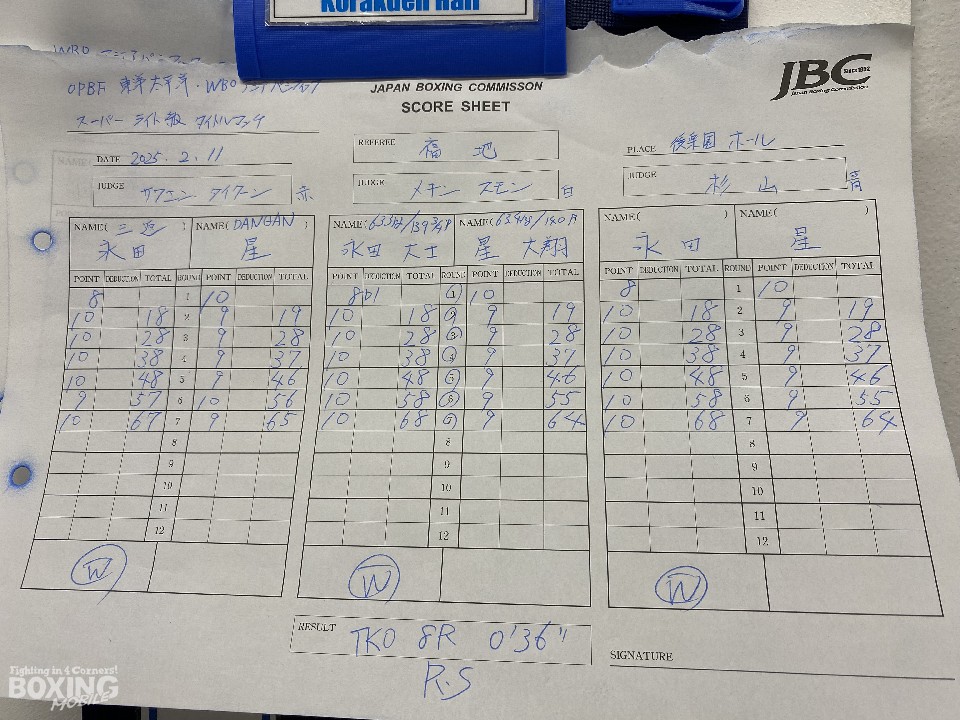 Korakuen Hall
WBO
OPBF 東洋太平洋・WBO アジアパシフィック
スーパーライト級 タイトルマッチ
JAPAN BOXING COMMISSON
SCORE SHEET
JBC
Since 1952
Japan Boxing Commission
DATE 2025. 2. 11
REFEREE 福地
PLACE 後楽園ホール
JUDGE サワエン タイクーン 赤
JUDGE メチン スモン 白
JUDGE 杉山 青
NAME(三迫) NAME(DANGAN)
永田 星
POINT DEDUCTION TOTAL ROUND POINT DEDUCTION TOTAL
8 1 10
10 18 2 9 19
10 28 3 9 28
10 38 4 9 37
10 48 5 9 46
9 57 6 10 56
10 67 7 9 65
8
9
10
11
12
W
NAME( NAME(
永田 大士 星 大翔
POINT DEDUCTION TOTAL ROUND POINT DEDUCTION TOTAL
8 D1 1 10
10 18 2 9 19
10 28 3 9 28
10 38 4 9 37
10 48 5 9 46
10 58 6 9 55
10 68 7 9 64
8
9
10
11
12
W
NAME( ) NAME( )
永田 星
POINT DEDUCTION TOTAL ROUND POINT DEDUCTION TOTAL
8 1 10
10 18 2 9 19
10 28 3 9 28
10 38 4 9 37
10 48 5 9 46
10 58 6 9 55
10 68 7 9 64
8
9
10
11
12
W
RESULT TKO 8R 0'36"
R.S
SIGNATURE
Fighting in 4 Corners!
BOXING
MOBILE